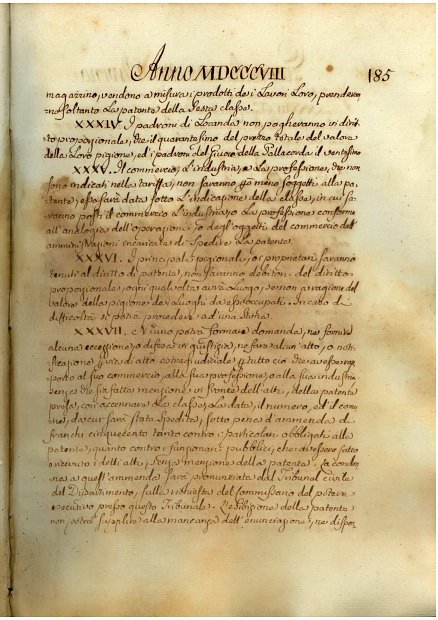 Anno MDCCCVIII 185
magazzino, vendono a misura i prodotti dei Lavori Loro, prenderan
no soltanto La patente della sesta classe.
XXXIV. I padroni di Locanda non pagheranno in dirit
to proporzionale, che il quarantesimo del prezzo totale del valore
della Loro pigione, ed i padroni del Giuoco della Pallacorda il ventesimo
XXXV. Il commercio, L'industria, e La professione, che non
sono indicati nella tariffa, non saranno meno soggetti alla pa
tente; essa sarà data sotto L'indicazione della classe, in cui sa
ranno posti il commercio L'industria, o La professione conforme
all'analogia dell'operazione, o degli oggetti del commercio dell'
amministrazioni incaricate di Spedire La patente.
XXXVI. I principali pigionali, o i proprietari saranno
tenuti al diritto di patente, non saranno debitori del diritto
proporzionale ogni qual volta avrà Luogo, se non a ragione del
valore della pigione de i Luoghi da essi occupati. In caso di
difficoltà si potrà procedere ad una Stima.
XXXVII. Niuno potrà formare domanda, ne fornire
alcuna eccezione, o difesa in giustizia, ne fare alcun'atto, o noti
ficazione per via di atto estragiudiciale per tutto ciò che avesse rap
porto al suo commercio, alla sua professione, o alla sua industria
senza che sia fatta menzione in fronte dell'atti, della patente
presa, con accennare La classe, La data, il numero, ed il comu
ne, da cui sarà stata Spedita, sotto pena d'ammenda di
franchi cinquecento tanto contro i particolari obbligati alla
patente, quanto contro i funzionari pubblici, che avessero fatto
o ricevuto i detti atti, senza menzione della patente. La condan
na a quest'ammenda sarà pronunziata dal Tribunal Civile
del Dipartimento, sulla richiesta del Commissario del potere
esecutivo presso questo Tribunale. L'esibizione della patente
non potrà supplire alla mancanza dell'enunciazione, ne dispen